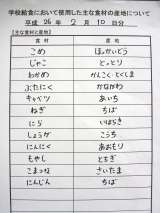 学校給食において使用した主な食材の産地について
平成 26 年 2 月 10 日分
【主な食材と産地】
食材 産地
こめ ほっかいどう
じゃこ とっとり
わかめ かんこく てくしま
ぶたにく かながわ
キャベツ あいち
ねぎ ちば
にら いばらき
しょうが こうち
にんにく あおもり
もやし とちぎ
こまつな さいたま
にんじん ちば